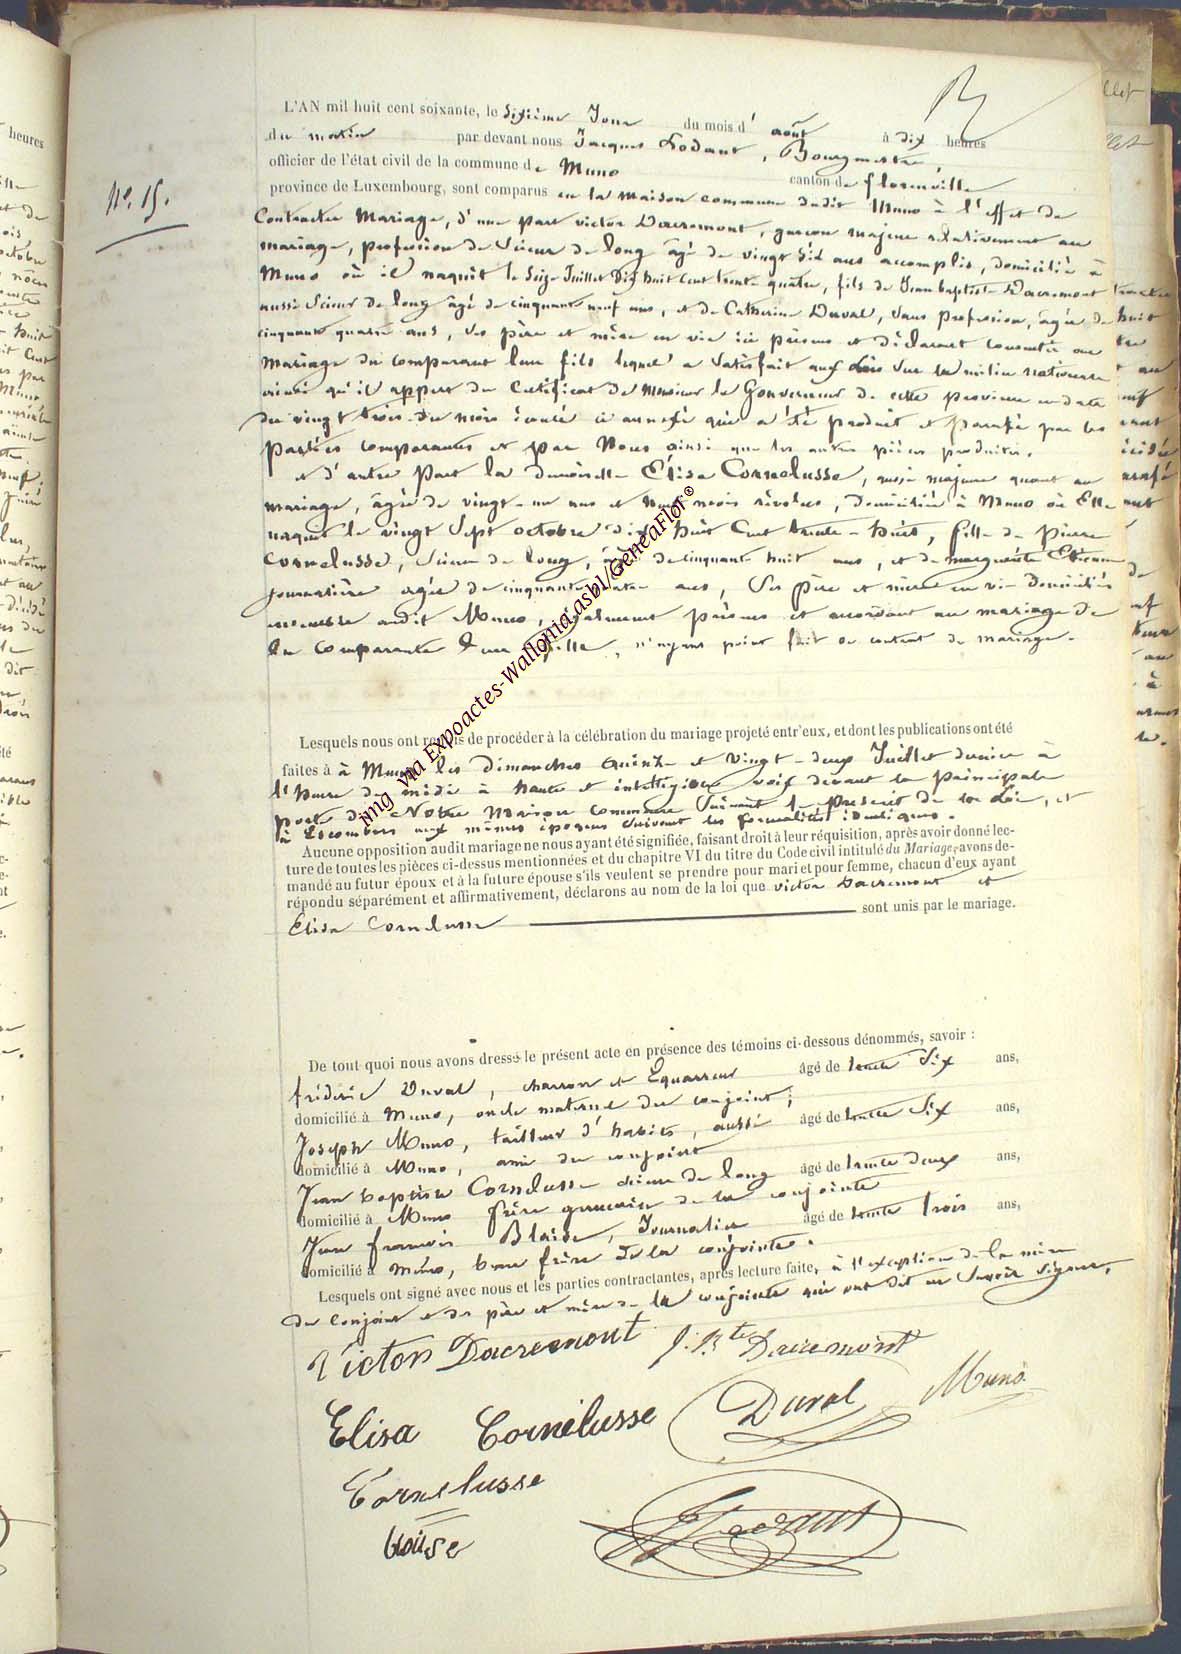 Nº. 15.
L'AN mil huit cent soixante, le Sixième Jour du mois d' août à dix heures
du matin par devant nous Jacques Lodant, Bourgmestre,
officier de l'état civil de la commune de Muno canton de florenville
province de Luxembourg, sont comparus en la maison commune dudit Muno à l'effet de
Contracter Mariage, d'une part victor Dacremont, garçon majeur relativement au
mariage, profession de Scieur de long âgé de vingt Six ans accomplis, domicilié à
Muno où il naquit le Seize Juillet Dix huit Cent trente quatre, fils de Jean baptiste Dacremont
aussi Scieur de long âgé de cinquante neuf ans, et de Catherine Duval, Sans profession, âgée de
cinquante quatre ans, Ses père et mère en vie ici présens et déclarant Consentir au
Mariage du comparant leur fils lequel a Satisfait aux lois Sur la milice nationale
ainsi qu'il appert du Certificat de Monsieur le Gouverneur de cette province en date
du vingt trois du mois écoulé ci annexé qui a été produit et paraphé par les
parties comparantes et par Nous ainsi que les autres pièces produites.
et d'autre part la demoiselle Élisa Cornelusse, aussi majeure quant au
mariage, âgée de vingt-un ans et neuf mois révolus, domiciliée à Muno où Elle
naquit le vingt Sept octobre dix huit Cent trente-huit, fille de Pierre
Cornelusse, Scieur de long, âgé de cinquante huit ans, et de marguerite Etienne
journalière âgée de cinquante ans, Ses père et mère en vie Domiciliés
audit Muno, également présens et accordant au mariage de
la Comparante leur fille, n'ayant point fait de contrat de mariage.
Lesquels nous ont requis de procéder à la célébration du mariage projeté entr'eux, et dont les publications ont été
faites à à Muno les Dimanches quinze et vingt-deux Juillet dernier à
l'heure de midi à haute et intelligible voix devant la principale
porte de Notre Maison commune Suivant le prescrit de la Loi, et
à Escombres aux mêmes époques Suivant les formalités identiques.
Aucune opposition audit mariage ne nous ayant été signifiée, faisant droit à leur réquisition, après avoir donné lec-
ture de toutes les pièces ci-dessus mentionnées et du chapitre VI du titre du Code civil intitulé du Mariage, avons de-
mandé au futur époux et à la future épouse s'ils veulent se prendre pour mari et pour femme, chacun d'eux ayant
répondu séparément et affirmativement, déclarons au nom de la loi que victor Dacremont et
Elisa Cornelusse sont unis par le mariage.
De tout quoi nous avons dressé le présent acte en présence des témoins ci-dessous dénommés, savoir :
frédéric Duval, charron et Equarreur âgé de trente Six ans,
domicilié à Muno, oncle maternel du conjoint ;
Joseph Muno, tailleur d'habits, aussi âgé de trente Six ans,
domicilié à Muno, ami du conjoint
Jean baptiste Cornelusse scieur de long âgé de trente deux ans,
domicilié à Muno frère germain de la conjointe
Jean francois Blaise, Journalier âgé de trente trois ans,
domicilié à Muno, beau frère de la conjointe.
Lesquels ont signé avec nous et les parties contractantes, après lecture faite, à l'exception de la mère
du Conjoint et des père et mère de la conjointe qui ont dit ne Savoir Signer.
Victor Dacremont J. Bte Dacremont
Elisa Cornélusse Duval Muno
Cornelusse
blaise
img via Expoactes-Wallonia.asbl/GeneaFlor©